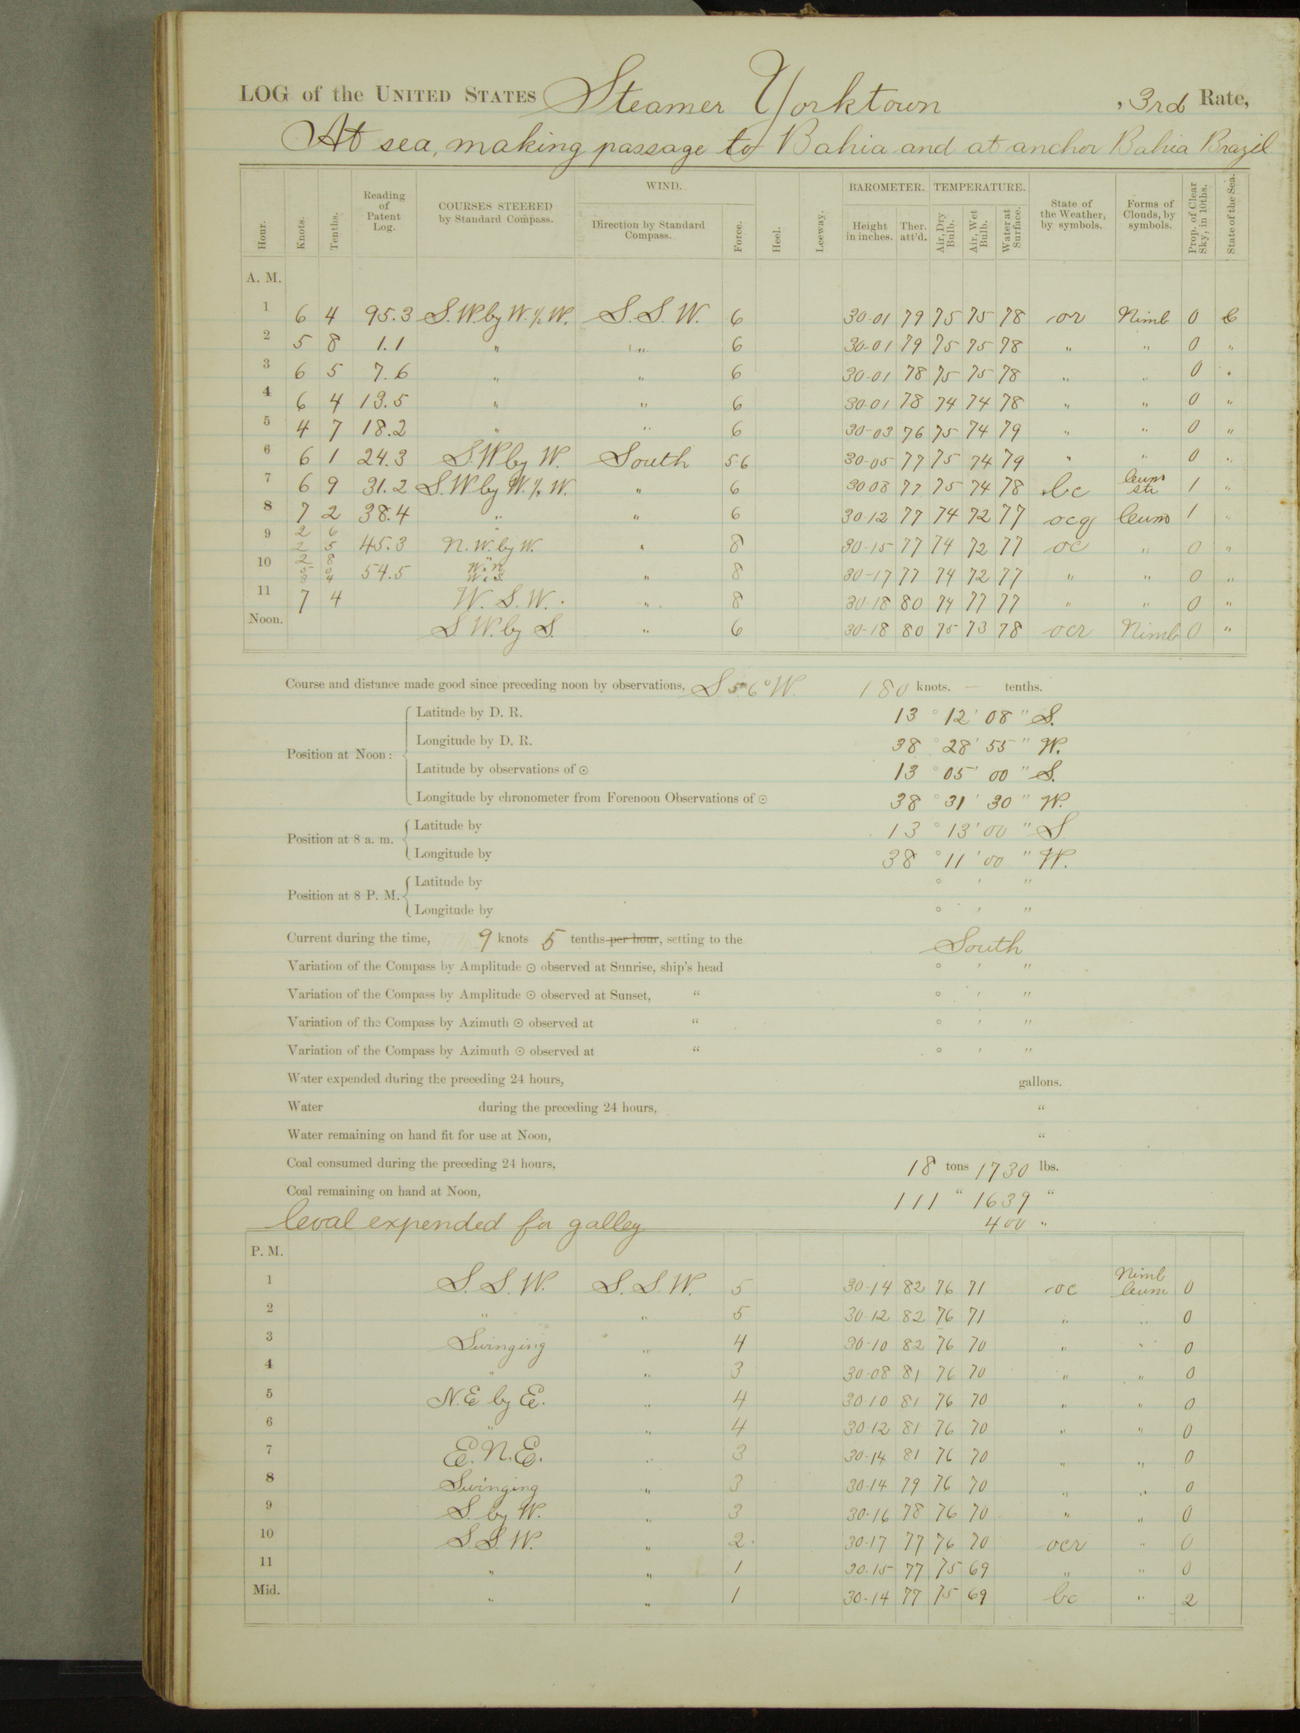 LOG of the UNITED STATES Steamer Yorktown, 3rd Rate,
At sea, making passage to Bahia and at anchor Bahia Brazil
Hour. Knots. Tenths. Reading of Patent Log. COURSES STEERED by Standard Compass. WIND. Direction by Standard Compass. Force. Heel. Leeway. BAROMETER. Height in inches. Ther. att'd. TEMPERATURE. Air, Dry Bulb. Air, Wet Bulb. Water at Surface. State of the Weather, by symbols. Forms of Clouds, by symbols. Prop. of Clear Sky, in 10ths. State of the Sea.
A. M.
1 6 4 95.3 S.W. by W. ½ W. S. S. W. 6 30-01 79 75 75 78 or Nimb 0 C
2 5 8 1.1 " " 6 30-01 79 75 75 78 " " 0 "
3 6 5 7.6 " " 6 30-01 78 75 75 78 " " 0 "
4 6 4 13.5 " " 6 30-01 78 74 74 78 " " 0 "
5 4 7 18.2 " " 6 30-03 76 75 74 79 " " 0 "
6 6 1 24.3 S.W by W. South 5-6 30-05 77 75 74 79 " " 0 "
7 6 9 31.2 S.W by W. ½ W. " 6 30 08 77 75 74 78 bc Cum Str 1 "
8 7 2 38.4 " " 6 30 12 77 74 72 77 ocq Cum 1 "
9 2 6 2 5 45.3 N. W. by W. " 8 30-15 77 74 72 77 oc " 0 "
10 2 8 54.5 " 8 30-17 77 74 72 77 " " 0 "
11 7 4 W. S. W. " 8 30-18 80 74 77 77 " " 0 "
Noon. S W. by S. " 6 30-18 80 75 73 78 ocr Nimb 0 "
Course and distance made good since preceding noon by observations, S 56° W. 180 knots. — tenths.
Position at Noon: Latitude by D. R. 13 ° 12 ' 08 " S.
Longitude by D. R. 38 ° 28 ' 55 " W.
Latitude by observations of ☉ 13 ° 05 ' 00 " S.
Longitude by chronometer from Forenoon Observations of ☉ 38 ° 31 ' 30 " W.
Position at 8 a. m. Latitude by 13 ° 13 ' 00 " S
Longitude by 38 ° 11 ' 00 " W.
Position at 8 P. M. Latitude by ° ' "
Longitude by ° ' "
Current during the time, 9 knots 5 tenths per hour, setting to the South
Variation of the Compass by Amplitude ☉ observed at Sunrise, ship's head ° ' "
Variation of the Compass by Amplitude ☉ observed at Sunset, " ° ' "
Variation of the Compass by Azimuth ☉ observed at " ° ' "
Variation of the Compass by Azimuth ☉ observed at " ° ' "
Water expended during the preceding 24 hours, gallons.
Water during the preceding 24 hours, "
Water remaining on hand fit for use at Noon, "
Coal consumed during the preceding 24 hours, 18 tons 1730 lbs.
Coal remaining on hand at Noon, 111 " 1639 "
Coal expended for galley 400 "
P. M.
1 S. S. W. S. S. W. 5 30-14 82 76 71 oc Nimb Cum 0
2 " " 5 30 12 82 76 71 " " 0
3 Swinging " 4 30-10 82 76 70 " " 0
4 " " 3 30-08 81 76 70 " " 0
5 N.E by E. " 4 30 10 81 76 70 " " 0
6 " " 4 30-12 81 76 70 " " 0
7 E. N. E. " 3 30-14 81 76 70 " " 0
8 Swinging " 3 30-14 79 76 70 " " 0
9 S. by W. " 3 30-16 78 76 70 " " 0
10 S.S. W. " 2 30-17 77 76 70 ocr " 0
11 " " 1 30-15 77 75 69 " " 0
Mid. " " 1 30-14 77 75 69 bc " 2